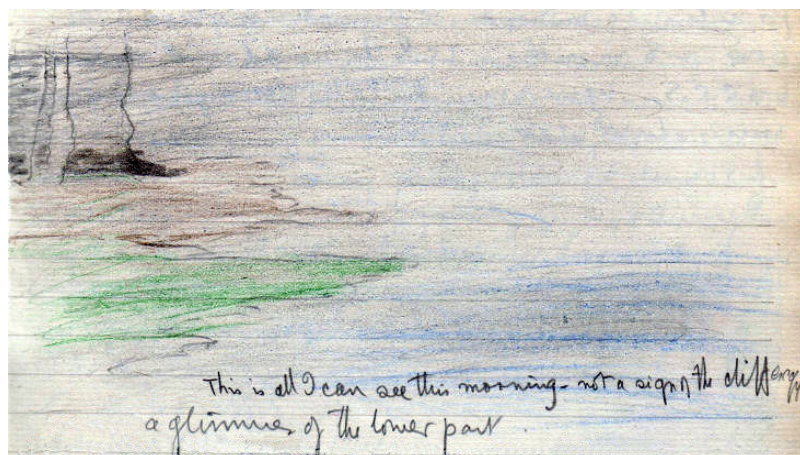 This is all I can see this morning - not a sign of the cliff
a glimmer of the lower part